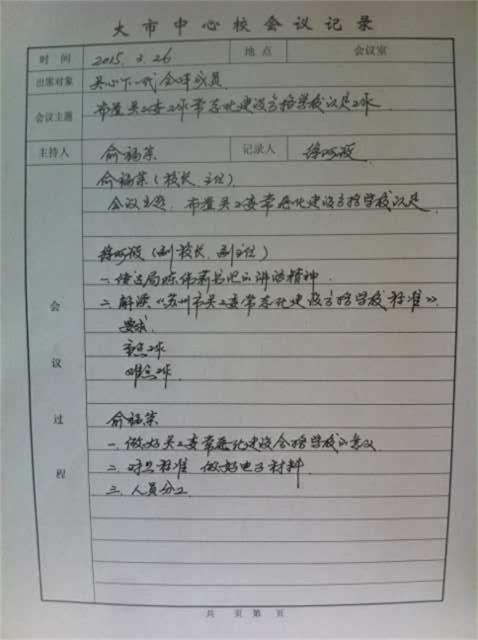 大市中心校会议记录
时间 2015.3.26 地点 会议室
出席对象 关心下一代全体成员
会议主题 布置关工委工作常态化建设合格学校认定工作
主持人 俞福荣 记录人
俞福荣（校长、主任）
会议主题：布置关工委常态化建设合格学校认定
（副校长、副主任）
一、传达局陈伟新书记的讲话精神
二、解读《苏州市关工委常态化建设合格学校标准》
要求
重点工作
难点工作
会议过程
俞福荣
一、做好关工委常态化建设合格学校的意义
二、对照标准 做好电子材料
三、人员分工
共 页 第 页